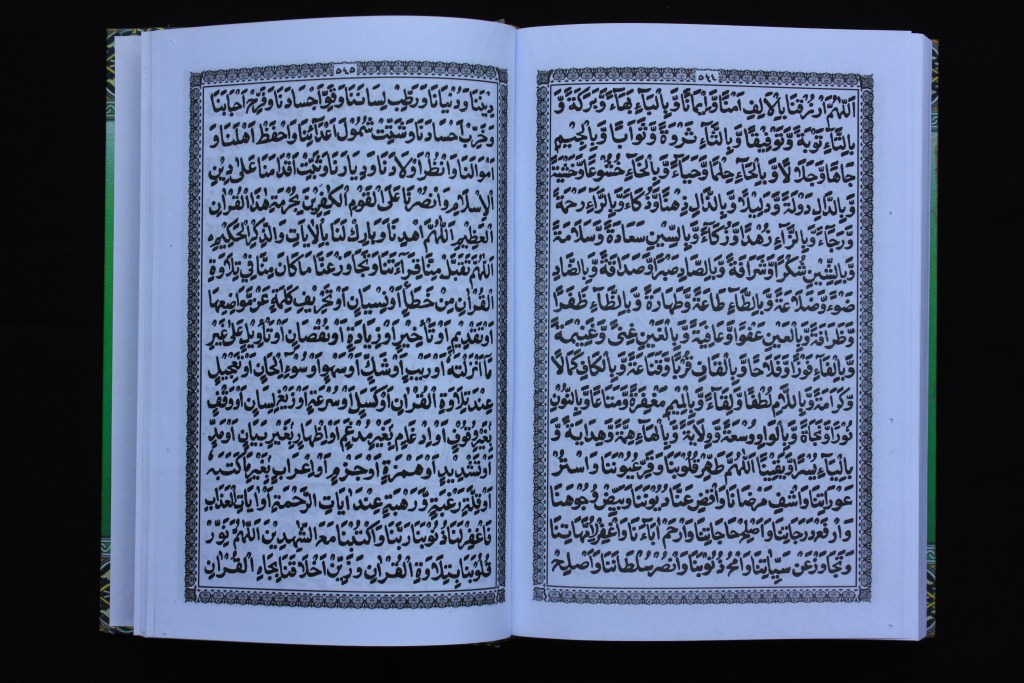 ٥٤٤
اَللّٰهُمَّ ارْزُقْنَا بِالْاَلِفِ اٰمَنًا وَّاِيْمَانًا وَّبِالْبَاۤءِ بَهَاۤءً وَّبَرَكَةً وَّ
بِالتَّاۤءِ تَوْبَةً وَّتَوْفِيْقًا وَّبِالثَّاۤءِ ثَرْوَةً وَّثَوَابًا وَّبِالْجِيْمِ
جَاهًا وَّجَلَالًا وَّبِالْحَاۤءِ حِلْمًا وَّحَيَاۤءً وَّبِالْخَاۤءِ خُشُوْعًا وَّخَشْيَةً
وَّبِالدَّالِ دَوْلَةً وَّدَلِيْلًا وَّبِالذَّالِ ذِهْنًا وَّذَكَاۤءً وَّبِالرَّاۤءِ رَحْمَةً
وَّرَجَاۤءً وَّبِالزَّاۤءِ زُهْدًا وَّزَكَاۤءً وَّبِالسِّيْنِ سَعَادَةً وَّسَلَامَةً
وَّبِالشِّيْنِ شُكْرًا وَّشَرَافَةً وَّبِالصَّادِ صَبْرًا وَّصَدَاقَةً وَّبِالضَّادِ
ضَوْءً وَّضَلَاعَةً وَّبِالطَّاۤءِ طَاعَةً وَّطَهَارَةً وَّبِالظَّاۤءِ ظَفَرًا
وَّظَرَافَةً وَّبِالْعَيْنِ عَفْوًا وَّعَافِيَةً وَّبِالْغَيْنِ غِنًى وَّغَنِيْمَةً
وَّبِالْفَاۤءِ فَوْزًا وَّفَلَاحًا وَّبِالْقَافِ قُرْبًا وَّقَنَاعَةً وَّبِالْكَافِ كَمَالًا
وَّكَرَامَةً وَّبِاللَّامِ لُطْفًا وَّلِقَاۤءً وَّبِالْمِيْمِ مَغْفِرَةً وَّمَتَاعًا وَّبِالنُّوْنِ
نُوْرًا وَّنَجَاةً وَّبِالْوَاوِ وُسْعَةً وَّوِلَايَةً وَّبِالْهَاۤءِ هِمَّةً وَّهِدَايَةً وَّ
بِالْيَاۤءِ يُسْرًا وَّيَقِيْنًا اَللّٰهُمَّ طَهِّرْ قُلُوْبَنَا وَقَرِّ عُيُوْنَنَا وَاسْتُرْ
عَوْرَاتِنَا وَاشْفِ مَرْضَانَا وَاقْضِ عَنَّا دُيُوْنَنَا وَبَيِّضْ وُجُوْهَنَا
وَارْفَعْ دَرَجَاتِنَا وَاصْلِحْ حَاجَاتِنَا وَارْحَمْ اٰبَاۤءَنَا وَاغْفِرْ اُمَّهَاتِنَا
وَتَجَاوَزْ عَنْ سَيِّاٰتِنَا وَامْحُ ذُنُوْبَنَا وَانْصُرْ سُلْطَانَنَا وَاَصْلِحْ
٥٤٥
دِيْنَنَا وَدُنْيَانَا وَرَطِّبْ لِسَانَنَا وَقَوِّ اَجْسَادَنَا وَفَرِّحْ اَحْبَابَنَا
وَخَرِّبْ اَحْسَادَنَا وَشَتِّتْ شُمُوْلَ اَعْدَاۤئِنَا وَاحْفَظْ اَهْلَنَا وَ
اَمْوَالَنَا وَانْظُرْ اَوْلَادَنَا وَدِيَارَنَا وَثَبِّتْ اَقْدَامَنَا عَلٰى دِيْنِ
الْاِسْلَامِ وَانْصُرْنَا عَلَى الْقَوْمِ الْكٰفِرِيْنَ بِحُرْمَةِ هٰذَا الْقُرْاٰنِ
الْعَظِيْمِ اَللّٰهُمَّ اهْدِنَا وَبَارِكْ لَنَا بِالْاٰيَاتِ وَالذِّكْرِ الْحَكِيْمِ
اَللّٰهُمَّ تَقَبَّلْ مِنَّا قِرَاۤءَتَنَا وَتَجَاوَزْ عَنَّا مَا كَانَ مِنَّا فِيْ تِلَاوَةِ
الْقُرْاٰنِ مِنْ خَطَاۤءٍ اَوْ نِسْيَانٍ اَوْ تَحْرِيْفِ كَلِمَةٍ عَنْ مَّوَاضِعِهَا
اَوْ تَقْدِيْمٍ اَوْ تَأْخِيْرٍ اَوْ زِيَادَةٍ اَوْ نُقْصَانٍ اَوْ تَأْوِيْلٍ عَلٰى غَيْرِ
مَا اَنْزَلْتَهٗ اَوْ رَيْبٍ اَوْ شَكٍّ اَوْ سَهْوٍ اَوْ سُوْۤءِ اِلْحَانٍ اَوْ تَعْجِيْلٍ
عِنْدَ تِلَاوَةِ الْقُرْاٰنِ اَوْ كَسَلٍ اَوْ سُرْعَةٍ اَوْ زَيْغِ لِسَانٍ اَوْ وَقْفٍ
بِغَيْرِ وُقُوْفٍ اَوْ اِدْغَامٍ بِغَيْرِ مُدْغَمٍ اَوْ اِظْهَارٍ بِغَيْرِ بَيَانٍ اَوْ مَدٍّ
اَوْ تَشْدِيْدٍ اَوْ هَمْزَةٍ اَوْ جَزْمٍ اَوْ اِعْرَابٍ بِغَيْرِ مَا كَتَبَهٗ
اَوْ قِلَّةِ رَغْبَةٍ وَّرَهْبَةٍ عِنْدَ اٰيَاتِ الرَّحْمَةِ اَوْ اٰيَاتِ الْعَذَابِ
فَاغْفِرْ لَنَا ذُنُوْبَنَا رَبَّنَا وَاكْتُبْنَا مَعَ الشّٰهِدِيْنَ اَللّٰهُمَّ نَوِّرْ
قُلُوْبَنَا بِتِلَاوَةِ الْقُرْاٰنِ وَزَيِّنْ اَخْلَاقَنَا بِجَاهِ الْقُرْاٰنِ